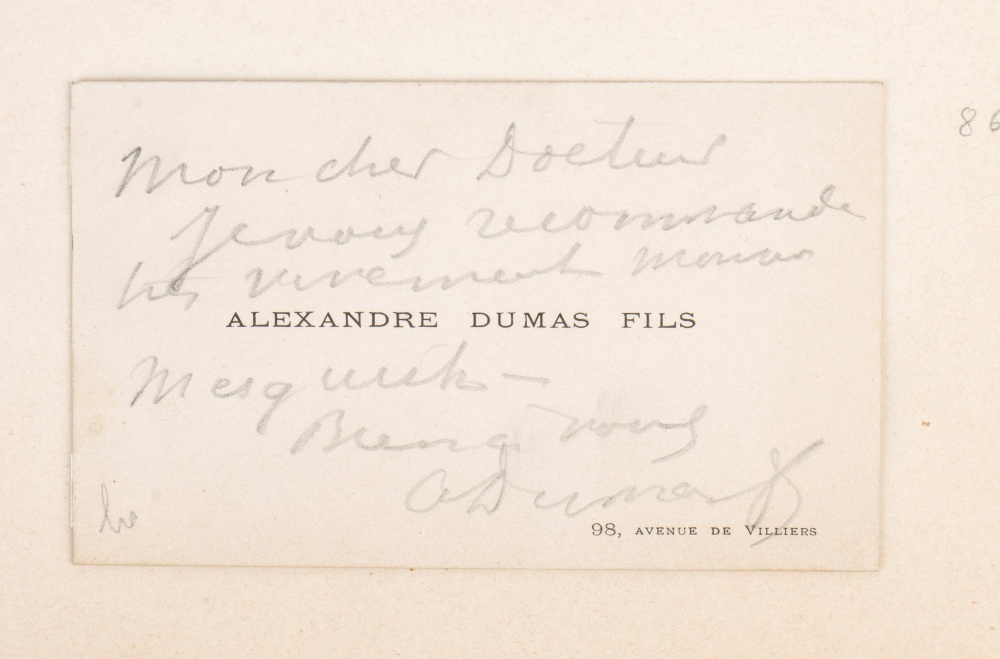 86
Mon cher Docteur
Je vous recommande
très vivement
ALEXANDRE DUMAS FILS
Bien à vous
A Dumas f
98, AVENUE DE VILLIERS